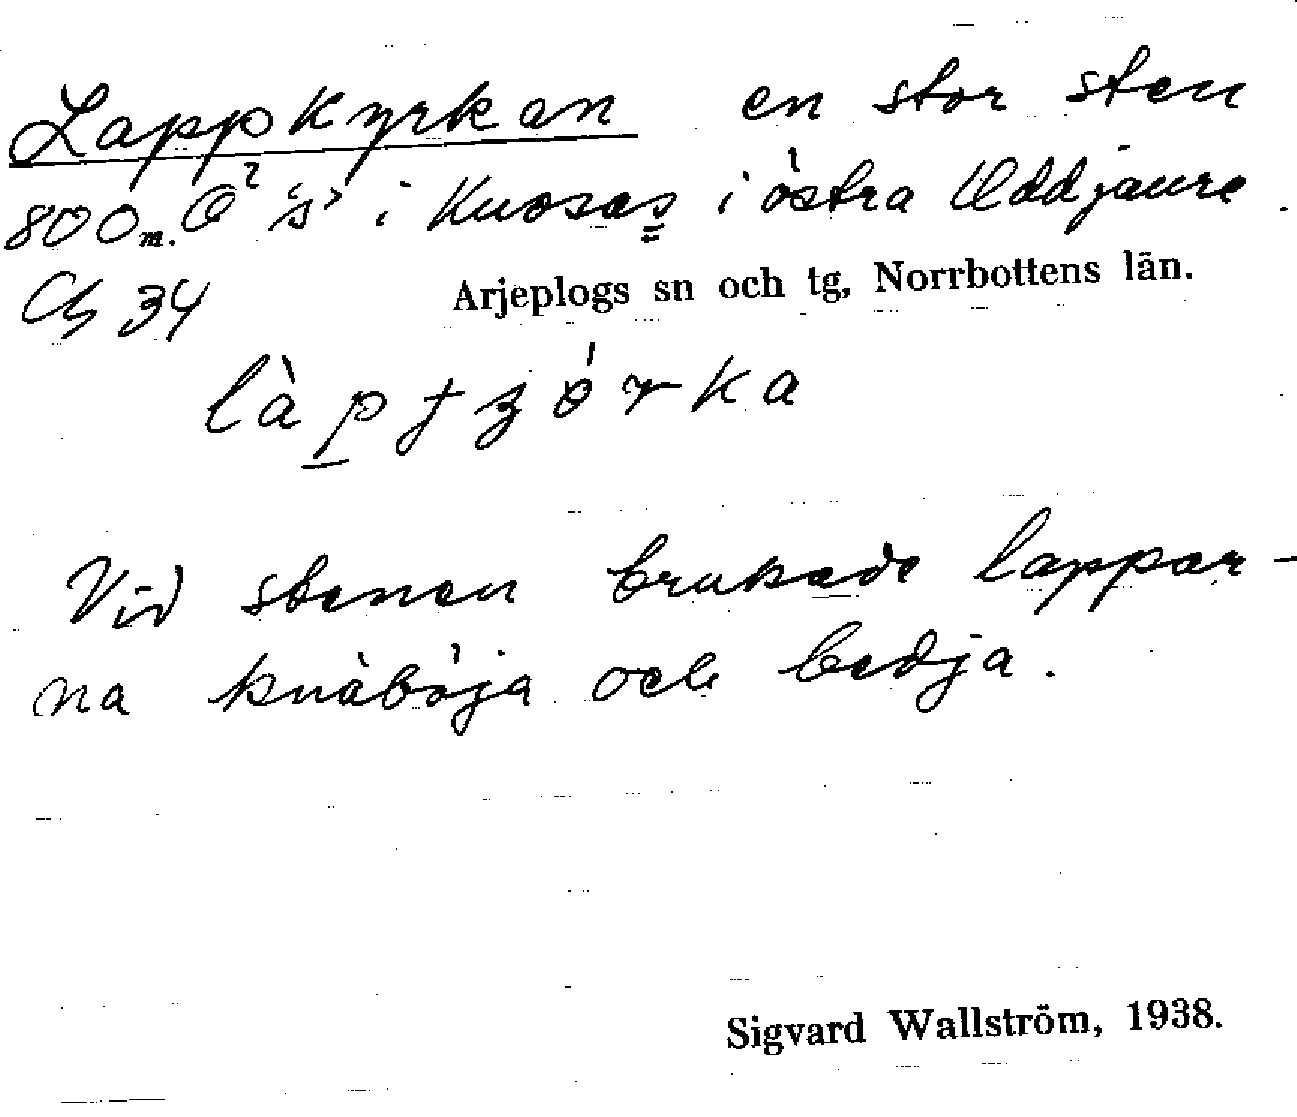 Lappkyrkan en stor sten
800 m. Ö² 's' i Kuosas i östra Uddjaure.
34 Arjeplogs sn och tg, Norrbottens län.
Vid stenen brukade lappar-
na knäböja och bedja.
Sigvard Wallström, 1938.